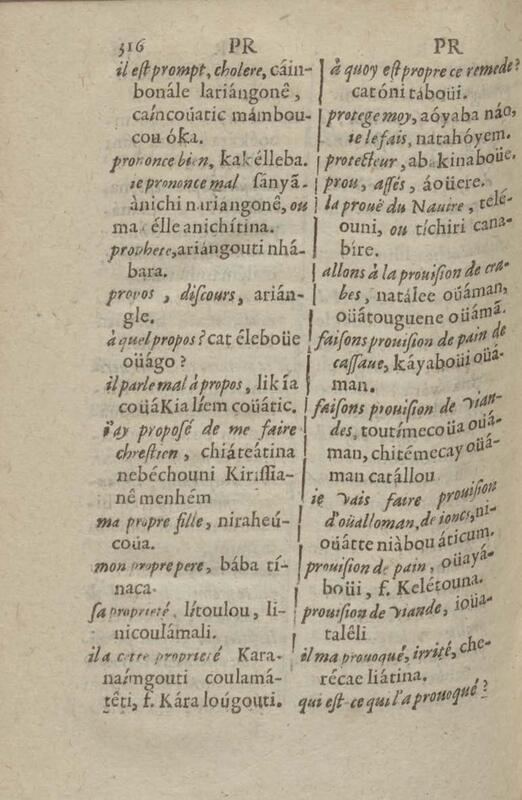 316 PR PR
il est prompt, cholere, cáin-
bonále lariángonê,
caíncoüatic mámbou-
cou óka.
prononce bien, kakélleba.
ie prononce mal sãnyã-
ànichi nariangonê, ou
ma élle anichítina.
prophete, ariángouti nhá-
bara.
propos, discours, arián-
gle.
à quel propos? cat éleboüe
oüágo?
il parle mal à propos, likía
coüáKia líem coüátic.
i'ay proposé de me faire
chrestien, chiáteátina
nebéchouni Kirissia-
nê menhém
ma propre fille, niraheú-
coüa.
mon propre pere, bába tí-
naca.
sa proprieté, lítoulou, li-
nicoulámali.
il a cette proprieté Kara-
naímgouti coulamá-
têti, f. Kára loúgouti.
à quoy est propre ce remede?
catóni táboüi.
protege moy, aóyaba náo,
ie le fais, natahóyem.
protecteur, abakinaboüe.
prou, assés, áoüere.
la prouë du Nauire, telé-
ouni, ou tíchiri cana-
bíre.
allons à la prouision de cra-
bes, natálee oüáman,
oüátouguene oüámã.
faisons prouision de pain de
cassaue, káyaboüi oüá-
man.
faisons prouision de vian-
des, toutímecoüa oüá-
man, chitémecay oüá-
man catállou
ie vais faire prouision
d'oüalloman, de ioncs, ni-
oüátte niàbou áticum.
prouision de pain, oüayá-
boüi, f. Kelétouna.
prouision de viande, ioüa-
talêli
il ma prouoqué, irrité, che-
récae liátina.
qui est-ce qui l'a prouoqué?